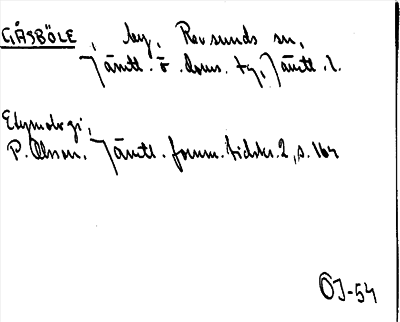 GÅSBÖLE, by, Revsunds sn,
Jämtl. ö. doms. tg, Jämtl. l.
Etymologi,
P. Olsson, Jämtl. fornm. tidskr. 2, s. 164
ÖJ-54